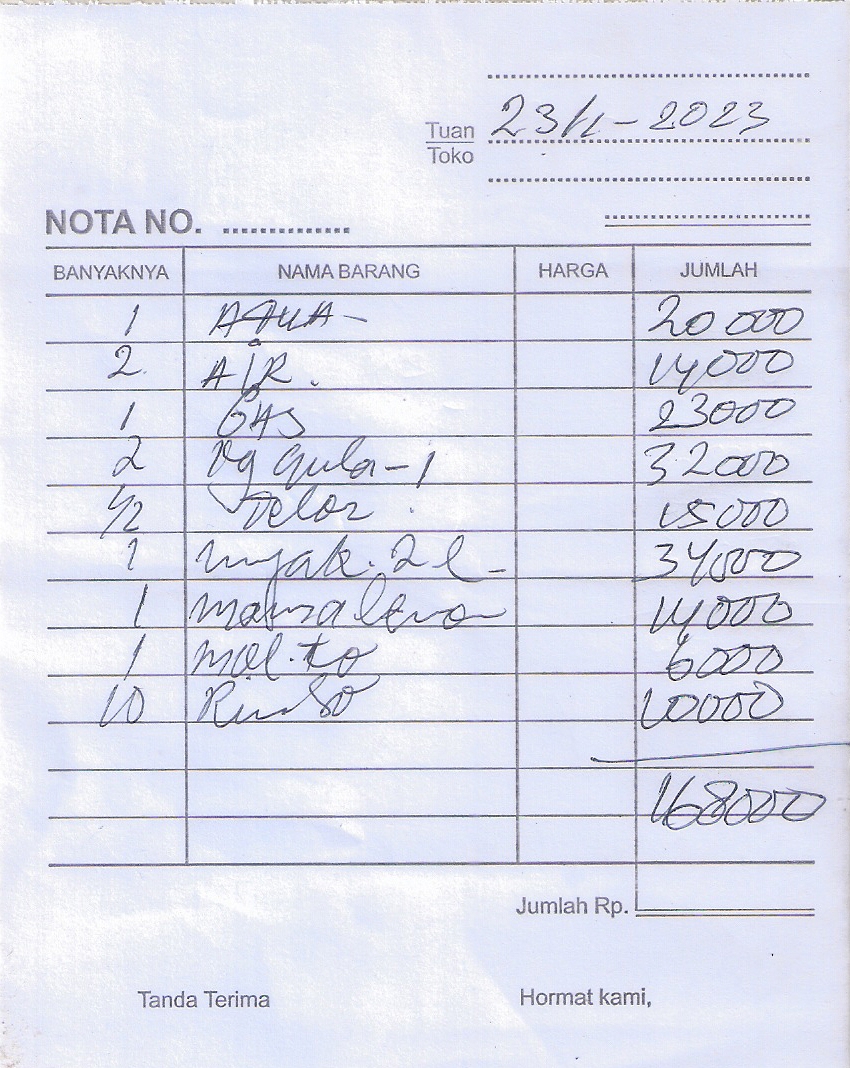 Tuan 23/1 - 2023
Toko
NOTA NO. ..............
BANYAKNYA NAMA BARANG HARGA JUMLAH
1 AQUA - 20 000
2. AIR. 14000
1 GAS 23000
2 kg gula - 1 32000
1/2 Telor 15000
1 2 l - 34000
1 14000
1 mol.to 6000
10 Rinso 10000
168000
Jumlah Rp.
Tanda Terima Hormat kami,